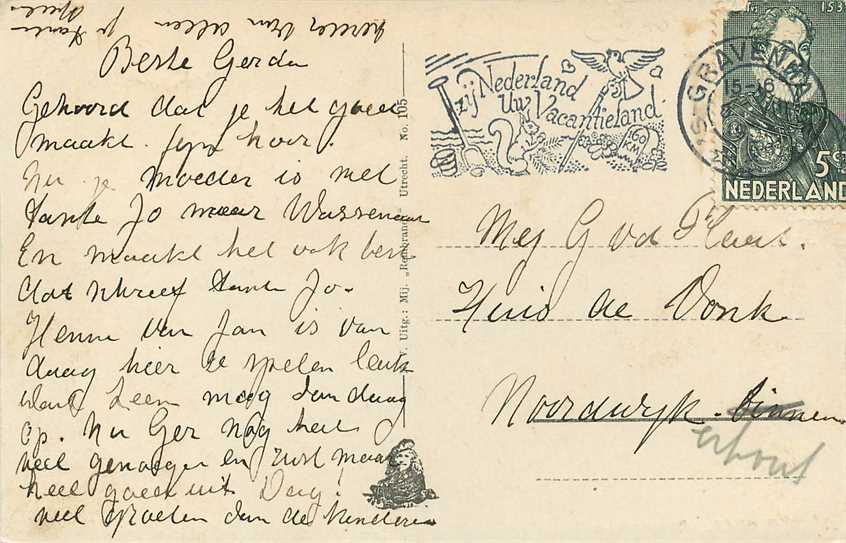 Beste Gerda
Gehoord dat je het goed
maakt. fyn hoor.
Nu je Moeder is met
tante Jo naar Wassenaar
En maakt het ook best
dat schreef tante Jo.
Henne van Jan is van
daag hier te spelen leuk
want Leen mag vandaag
op. Nu Ger nog heel
veel genoegen en rust maar
heel goed uit Dag!
veel groeten van de kinderen
verder van allen je tante
No. 105
Uitg.: Mij. „Rembrandt" Utrecht.
zij Nederland
Uw Vacantieland
160 KM
'S-GRAVENHA
15-16
153
5 ct
NEDERLAND
Mej G vd Plaat.
Huis de Vonk
Noordwyk-binnen
erhout